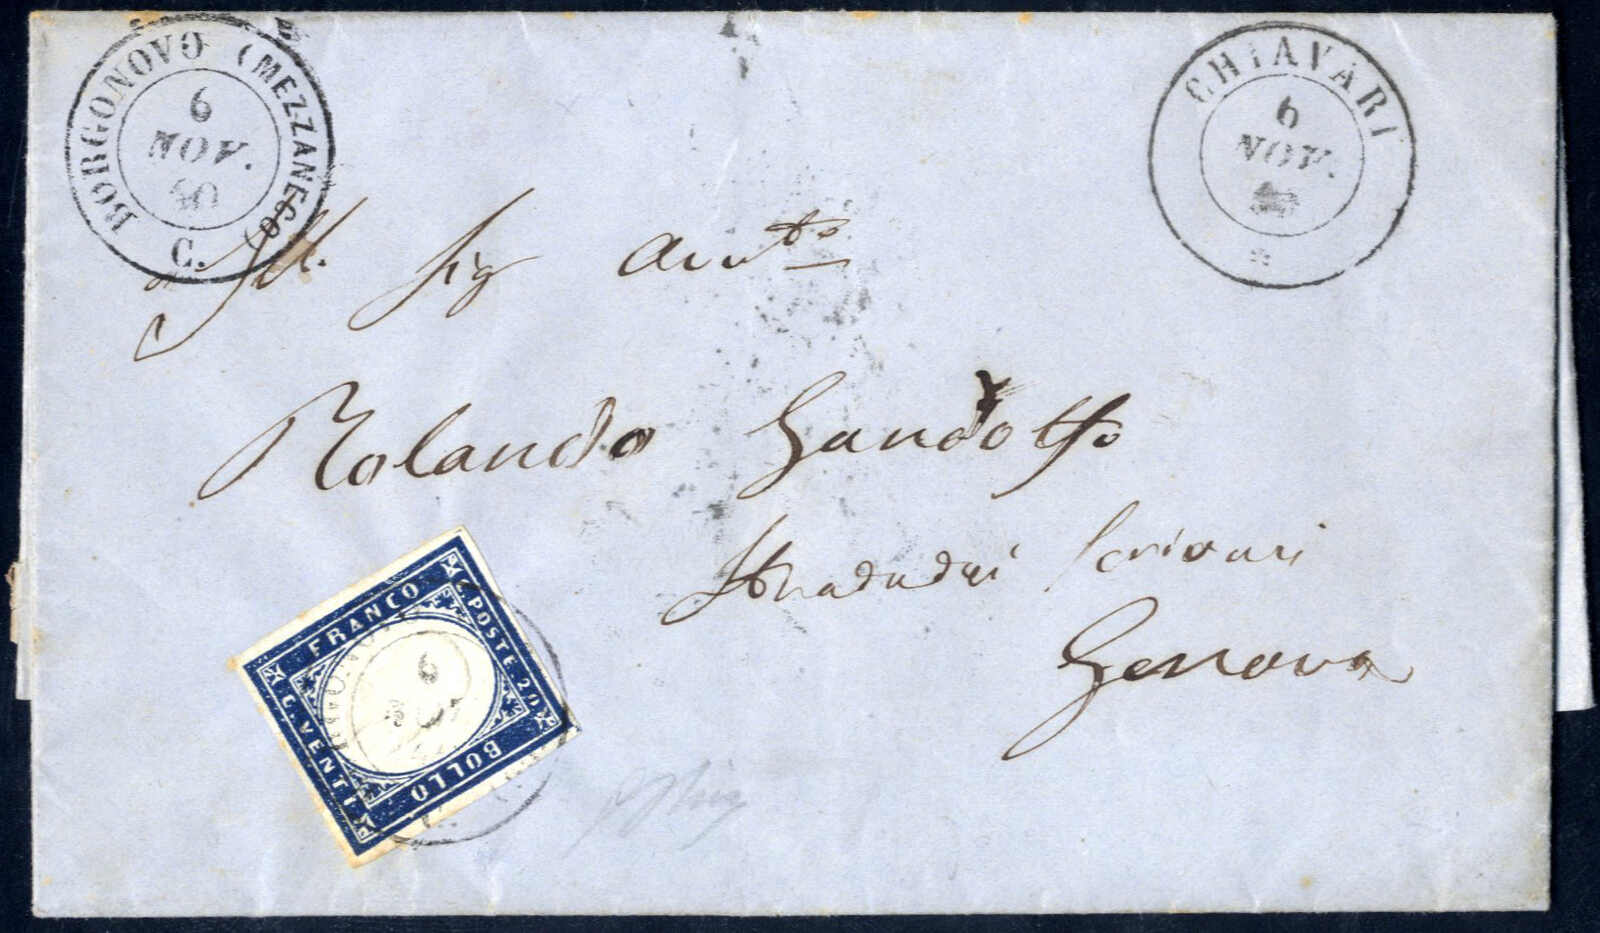 BORGONOVO (MEZZANEGO)
C.
6
NOV.
60
CHIAVARI
6
NOV.
Ill. Sig Avv.to
Rolando Gandolfo
Strada dei Scrivani
Genova
FRANCO
C. POSTE 20
BOLLO
C. VENTI
6